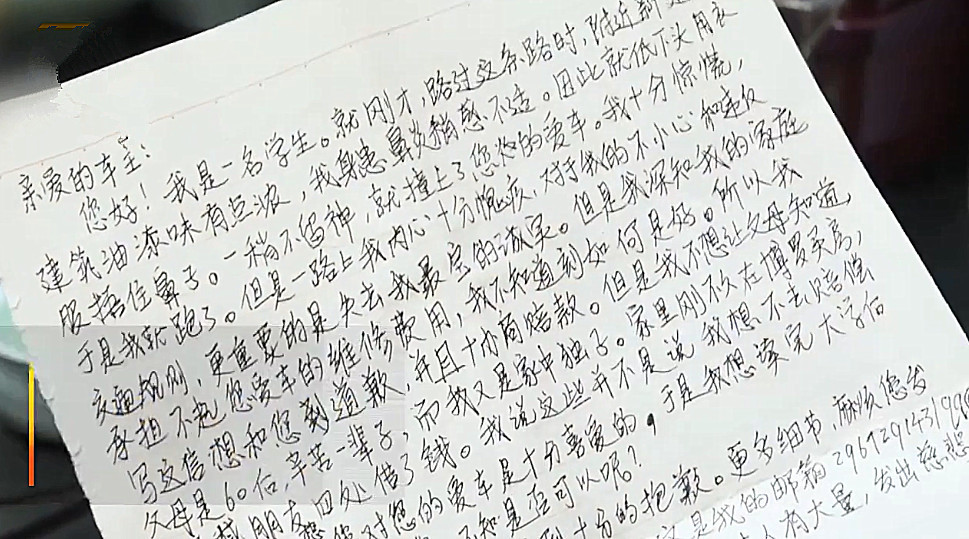 亲爱的车主:
您好!我是一名学生。就刚才,路过这条路时,附近新建
建筑油漆味有点浓,我身患鼻炎稍感不适。因此就低下头用衣
服捂住鼻子。一稍不留神,就撞上了您的爱车。我十分惊慌,
于是我就跑了。但是一路上我内心十分愧疚,对于我的不小心和违反
交通规则,更重要的是失去我最宝的诚实。但是我深知我的家庭
承担不起您爱车的维修费用,我不知道到如何是好。所以我
写这信想和您到道歉,并且协商赔款。但是我不想让父母知道,
父母是60后,辛苦一辈子,而我又是家中独子。家里刚不久在博罗买房,
我朋友四处借了钱。我说这些并不是说我想不去赔偿
您对您的爱车是十分喜爱的,于是我想读完大学后
不知是否可以呢?
到十分的抱歉。更多细节,麻烦您发
这是我的邮箱
人有大量,发出慈悲